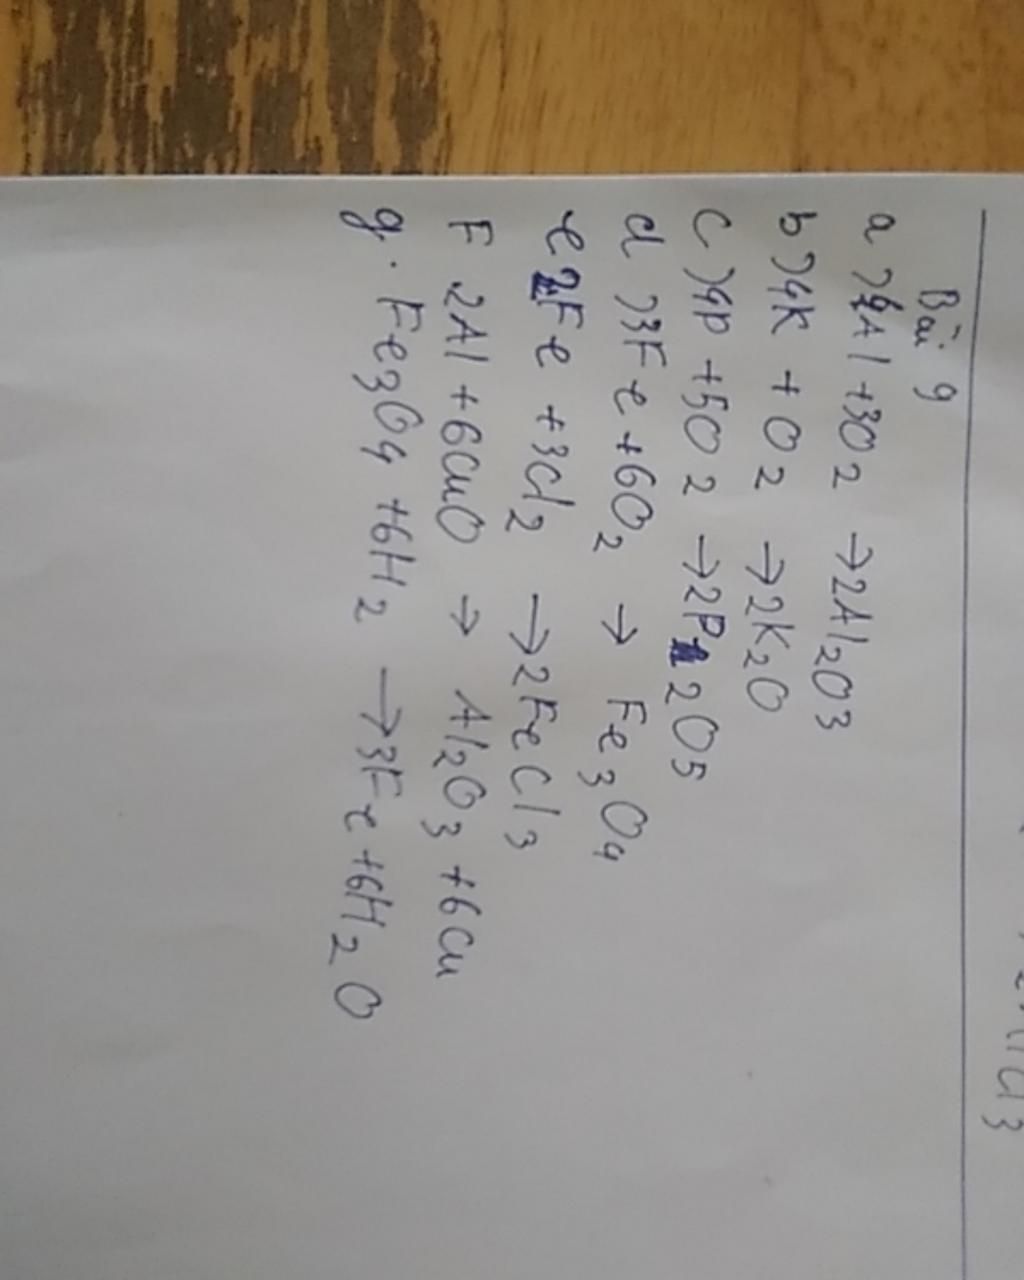 Bài 9
a) 4Al + 3O2 → 2Al2O3
b) 4K + O2 → 2K2O
c) 4P + 5O2 → 2P2O5
d) 3Fe + 6O2 → Fe3O4
e 2Fe + 3Cl2 → 2FeCl3
F 2Al + 6CuO → Al2O3 + 6Cu
g. Fe3O4 + 6H2 → 3Fe + 6H2O